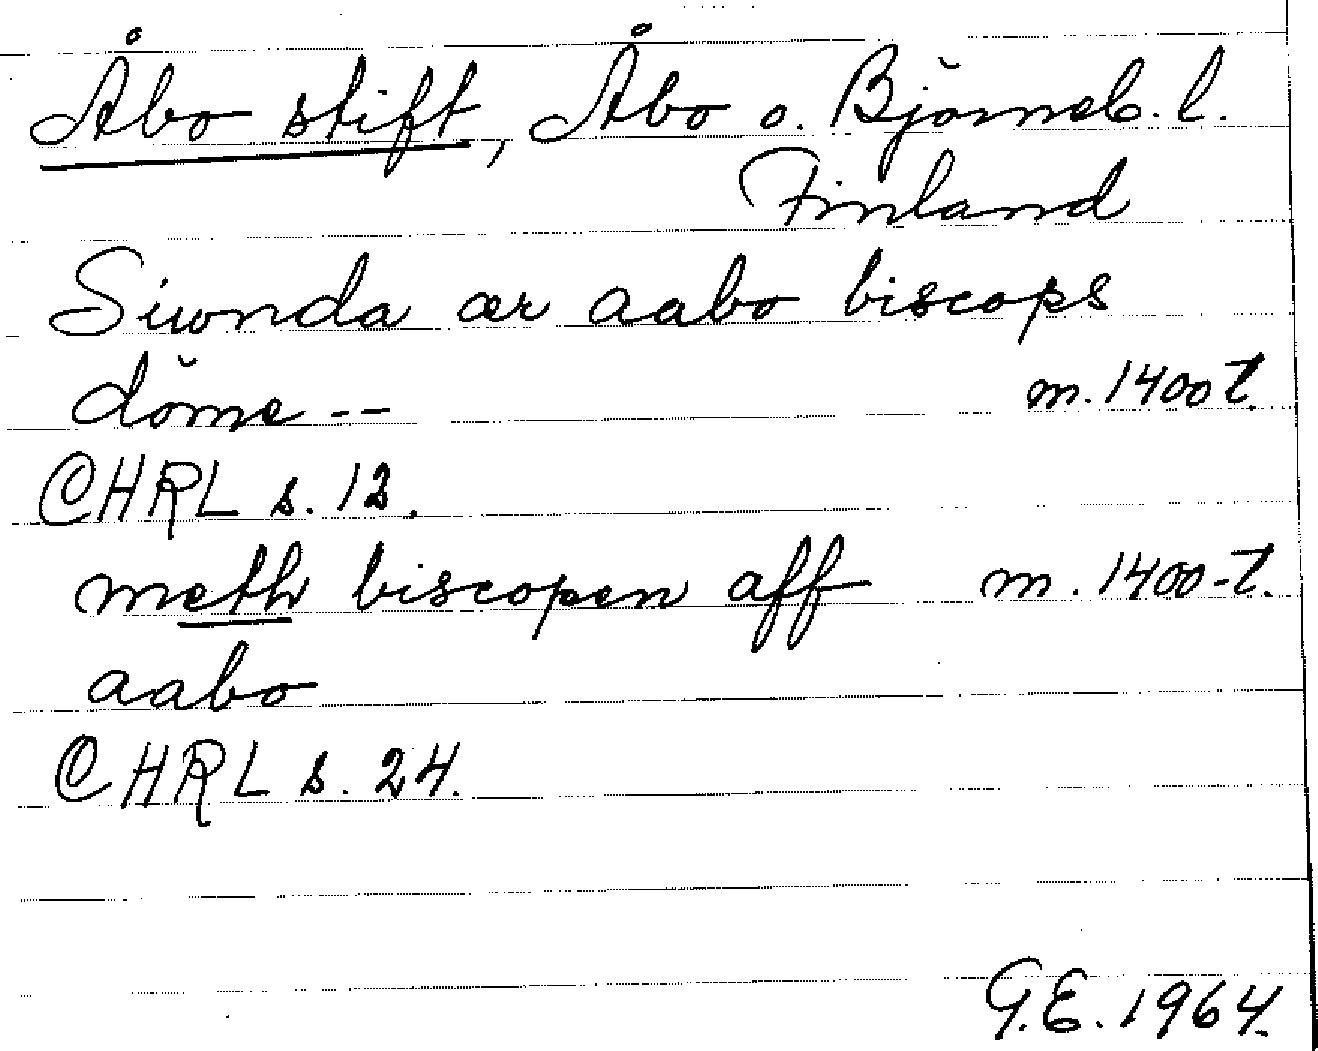 Åbo stift, Åbo o. Björneb. l.
Finland
Siwnda ær aabo biscops
döme -- m. 1400 t.
CHRL s. 12.
meth biscopen aff m. 1400-t.
aabo
CHRL s. 24.
G.E. 1964.